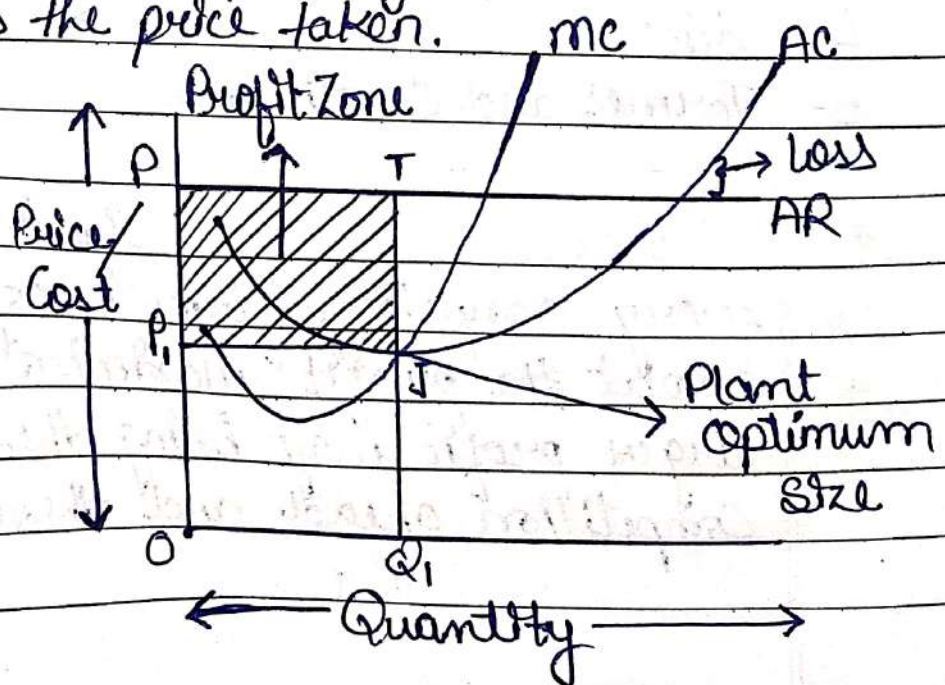 the price taken.
MC
AC
Profit Zone
P
T
Loss
AR
Price
Cost
P1
J
Plant
Optimum
Size
O
Q1
Quantity